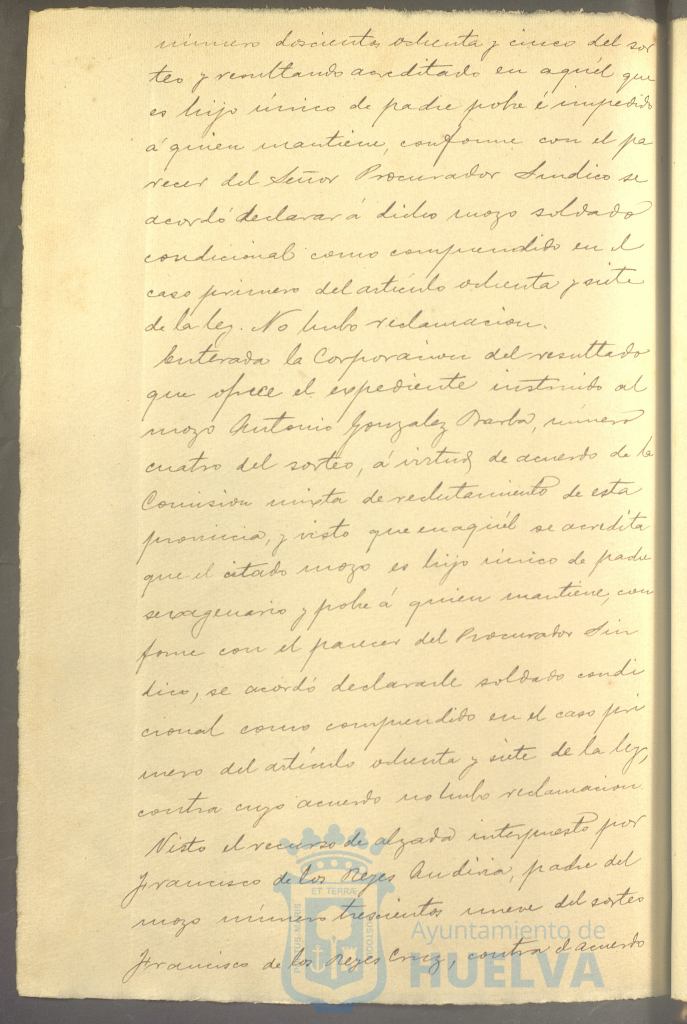 número doscientos ochenta y cinco del sor
teo y resultando acreditado en aquél que
es hijo único de padre pobre é impedido
á quien mantiene, conforme con el pa
recer del Señor Procurador Sindico se
acordó declarar á dicho mozo soldado
condicional como comprendido en el
caso primero del artículo ochenta y siete
de la ley. No hubo reclamacion.
Enterada la Corporacion del resultado
que ofrece el expediente instruido al
mozo Antonio Gonzalez Barba, número
cuatro del sorteo, á virtud de acuerdo de la
Comision mixta de reclutamiento de esta
provincia, y visto que en aquél se acredita
que el citado mozo es hijo único de padre
sexagenario y pobre á quien mantiene, con
forme con el parecer del Procurador Sin
dico, se acordó declararle soldado condi
cional como comprendido en el caso pri
mero del artículo ochenta y siete de la ley,
contra cuyo acuerdo no hubo reclamacion.
Visto el recurso de alzada interpuesto por
Francisco de los Reyes Andivia, padre del
mozo número trescientos nueve del sorteo
Francisco de los Reyes Cruz, contra el acuerdo
PORTUS MARIS
ET TERRÆ
CUSTODIA
Ayuntamiento de
HUELVA